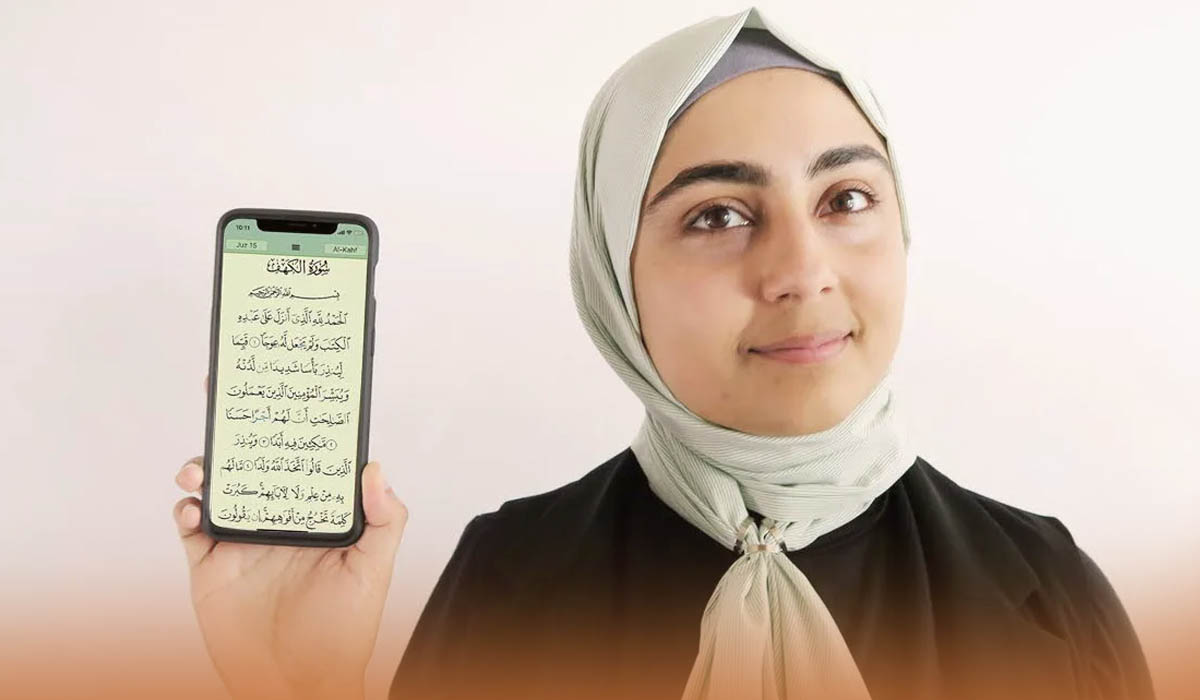 10:11
Juz 15
Al-Kahf
سُورَةُ الكَهۡفِ
بِسۡمِ ٱللَّهِ ٱلرَّحۡمَٰنِ ٱلرَّحِيمِ
ٱلۡحَمۡدُ لِلَّهِ ٱلَّذِيٓ أَنزَلَ عَلَىٰ عَبۡدِهِ
ٱلۡكِتَٰبَ وَلَمۡ يَجۡعَل لَّهُۥ عِوَجَاۜ ١ قَيِّمٗا
لِّيُنذِرَ بَأۡسٗا شَدِيدٗا مِّن لَّدُنۡهُ
وَيُبَشِّرَ ٱلۡمُؤۡمِنِينَ ٱلَّذِينَ يَعۡمَلُونَ
ٱلصَّٰلِحَٰتِ أَنَّ لَهُمۡ أَجۡرًا حَسَنٗا
٢ مَّٰكِثِينَ فِيهِ أَبَدٗا ٣ وَيُنذِرَ
ٱلَّذِينَ قَالُواْ ٱتَّخَذَ ٱللَّهُ وَلَدٗا ٤ مَّا لَهُم
بِهِۦ مِنۡ عِلۡمٖ وَلَا لِأٓبَآئِهِمۡۚ كَبُرَتۡ
كَلِمَةٗ تَخۡرُجُ مِنۡ أَفۡوَٰهِهِمۡۚ إِن يَقُولُونَ